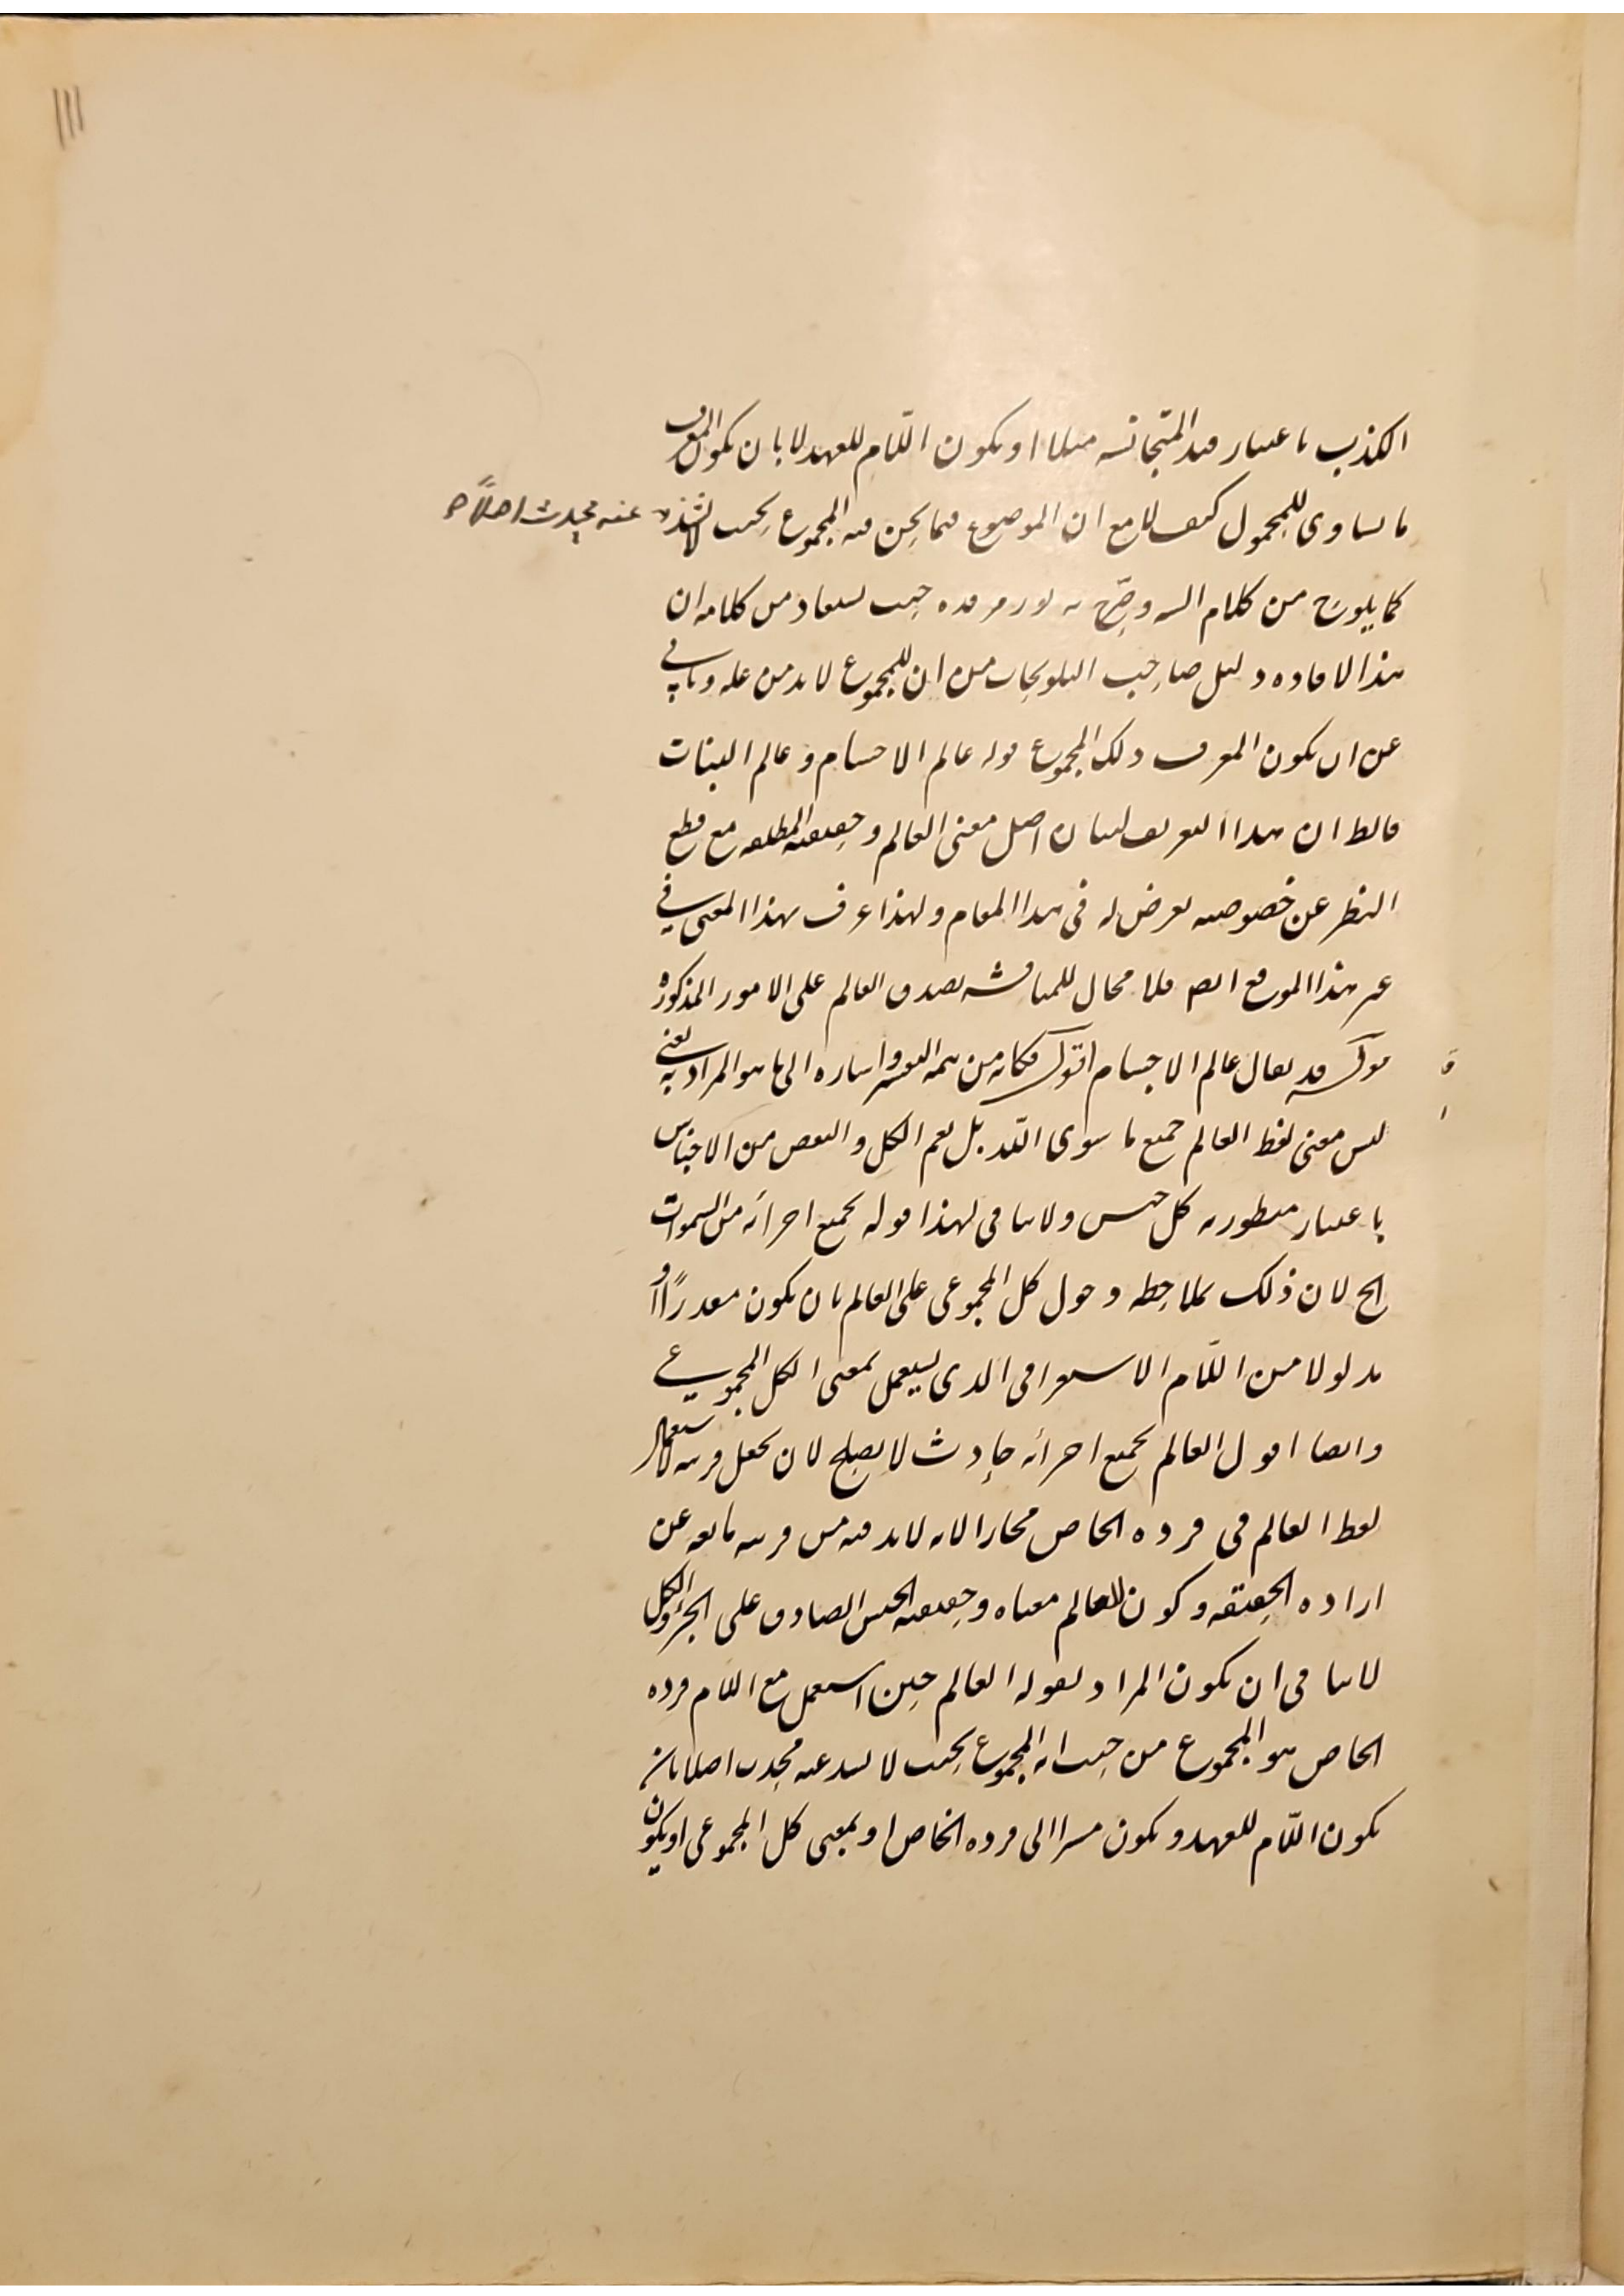 ١١١
الكذب باعتبار قيد المتجانسه مثلا او يكون اللّام للعهد لا بان يكون المعرف
ما يساوى للمحمول كيف لا مع ان الموضوع فيما نحن فيه المجموع بحيث لا يشذ عنه محدث اصلًا صح
كما يلوح من كلام السيد وضّح به نور مرقده حيث يستفاد من كلامه ان
هذا الافاده دليل صاحب التلويحات من ان للمجموع لا بد من علة وتابى
عن ان يكون المعرف ذلك المجموع قوله عالم الاجسام و عالم النبات
فالظ ان هذا التعريف لبيان اصل معنى العالم و حقيقته المطلقه مع قطع
النظر عن خصوصيه تعرض له فى هذا المقام ولهذا عرف بهذا المعنى فى
غير هذا الموقع ايضا فلا مجال للمناقشه بصدق العالم على الامور المذكوره
قوله قد يقال عالم الاجسام اقول فكانه من تتمه التفسير و اشاره الى ما هو المراد به يعنى
ليس معنى لفظ العالم جميع ما سوى اللّه بل يعم الكل و البعض من الاجناس
باعتبار منظوريه كل جنس ولا ينافى لهذا قوله بجميع اجزائه من السموات
الخ لان ذلك بملاحظه دخول كل المجموعى على العالم بان يكون مقدرًا او
مدلولا من اللّام الاستغراقى الذى يستعمل بمعنى الكل المجموعى
و ايضا اقول العالم بجميع اجزائه حادث لا يصلح لان يجعل قرينه لاستعمال
لفظ العالم فى فرده الخاص مجازا لانه لا بد فيه من قرينه مانعه عن
اراده الحقيقه و كون للعالم معناه و حقيقته الجنس الصادق على الجزء و الكل
لا ينافى ان يكون المراد بقوله العالم حين استعمل مع اللام فرده
الخاص هو المجموع من حيث انه المجموع بحيث لا يشذ عنه محدث اصلا بان
يكون اللّام للعهد و يكون مشيرا الى فرده الخاص او بمعنى كل المجموعى او يكون